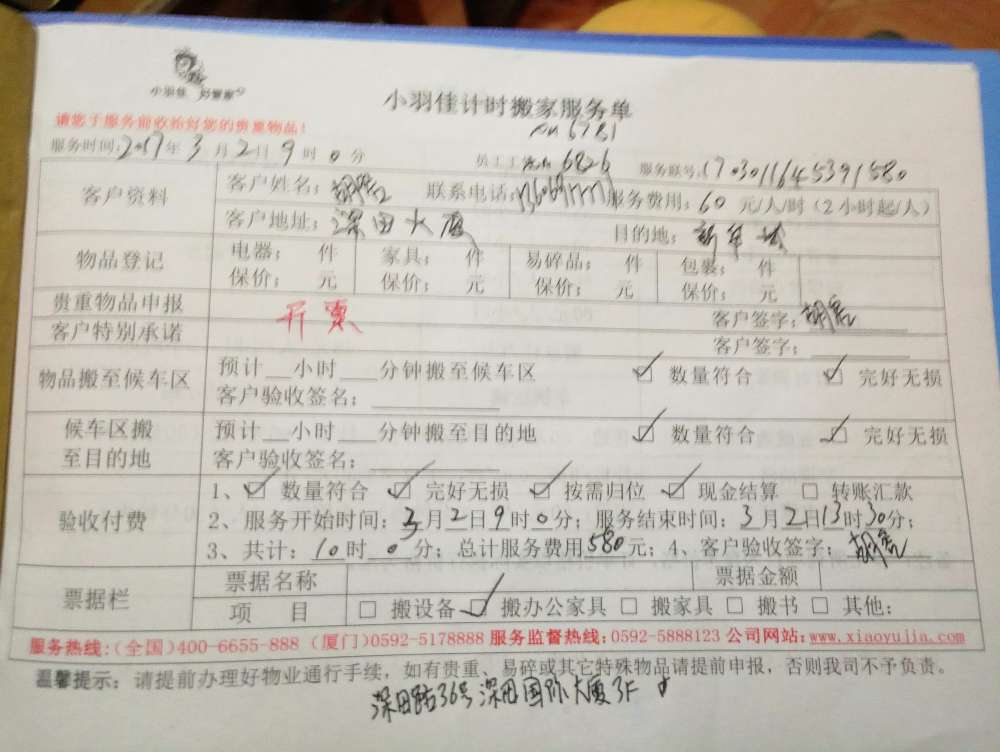 小羽佳 好管家
小羽佳计时搬家服务单
请您于服务前收拾好您的贵重物品!
6781
服务时间:2017年3月2日9时0分 员工工 6826 服务联号:1703011645391580
客户资料 客户姓名: 联系电话: 服务费用:60元/人/时(2小时起/人)
客户地址:深田大厦 目的地:
物品登记 电器: 件 家具: 件 易碎品: 件 包裹: 件
保价: 元 保价: 元 保价: 元 保价: 元
贵重物品申报 开票 客户签字:
客户特别承诺 客户签字:
物品搬至候车区 预计__小时___分钟搬至候车区 ☑ 数量符合 ☑ 完好无损
客户验收签名:
候车区搬至目的地 预计__小时___分钟搬至目的地 ☑ 数量符合 ☑ 完好无损
客户验收签名:
验收付费 1、☑ 数量符合 ☑ 完好无损 ☑ 按需归位 ☑ 现金结算 □ 转账汇款
2、服务开始时间:3月2日9时0分;服务结束时间:3月2日13时30分;
3、共计:10时0分;总计服务费用580元;4、客户验收签字:
票据栏 票据名称 票据金额
项 目 □ 搬设备 ☑ 搬办公家具 □ 搬家具 □ 搬书 □ 其他:
服务热线:(全国)400-6655-888 (厦门)0592-5178888 服务监督热线:0592-5888123 公司网站:www.xiaoyujia.com
温馨提示:请提前办理好物业通行手续,如有贵重、易碎或其它特殊物品请提前申报,否则我司不予负责。
深田路36号深田国际大厦3F